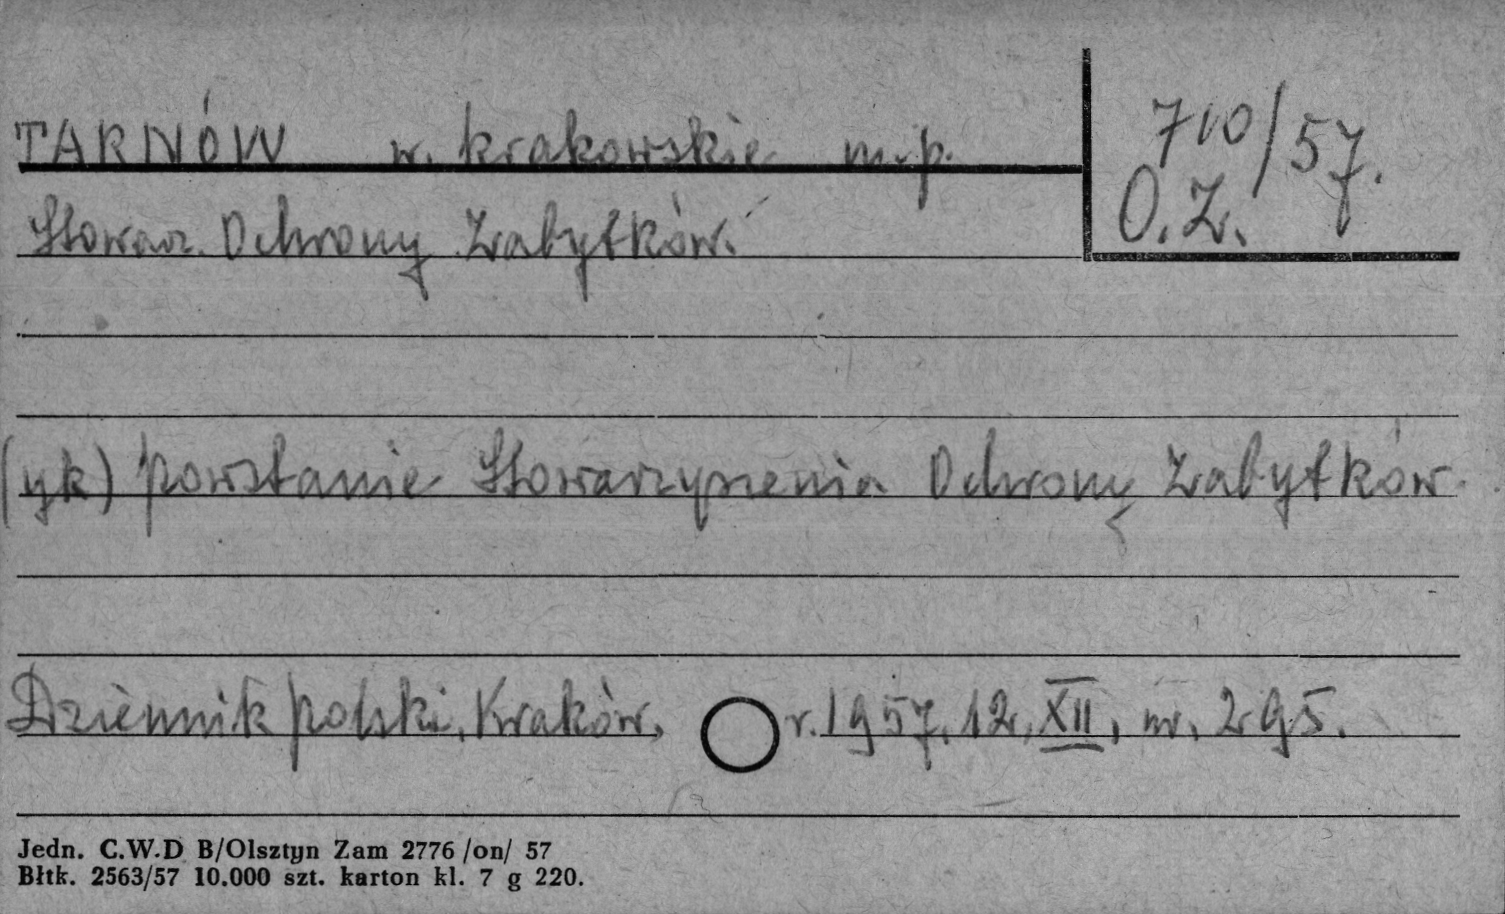 TARNÓW w. krakowskie m.p.
710/57.
O.Z.
Stowarz. Ochrony Zabytków.
(yk) powstanie Stowarzyszenia Ochrony Zabytków.
Dziennik polski, Kraków, r. 1957, 12, XII, nr. 295.
Jedn. C.W.D B/Olsztyn Zam 2776 /on/ 57
Błtk. 2563/57 10.000 szt. karton kl. 7 g 220.